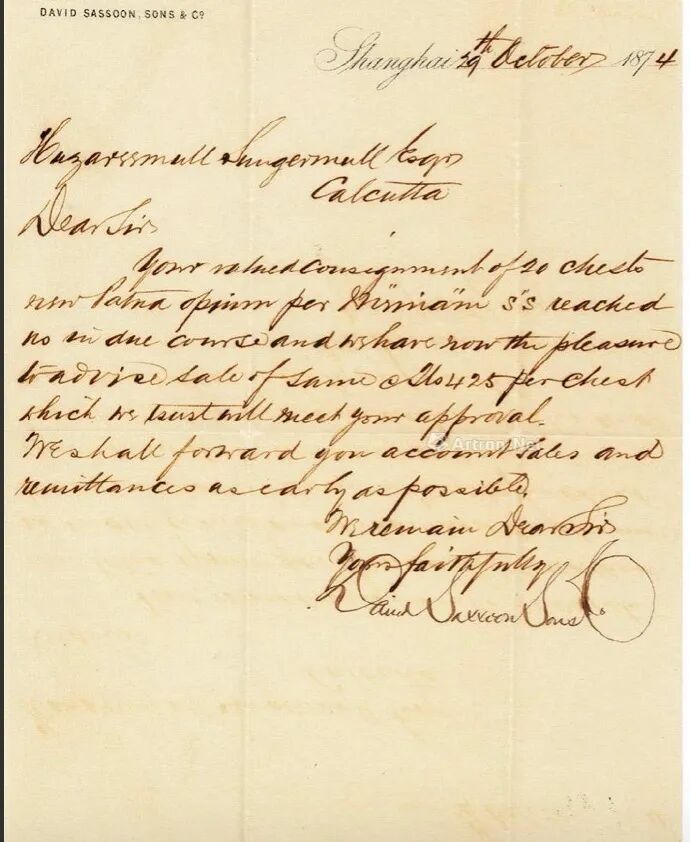 DAVID SASSOON, SONS & Co
Shanghai 29th October 1874
Hazareemull Esqr
Calcutta
Dear Sir
Your valued consignment of 20 chests
new Patna opium per S'S reached
us in due course and we have now the pleasure
to advise sale of same @ Tls 425 per chest
which we trust will meet your approval.
We shall forward you account sales and
remittances as early as possible.
We remain Dear Sir
Yours faithfully
David Sassoon Sons & Co
Artron.Net